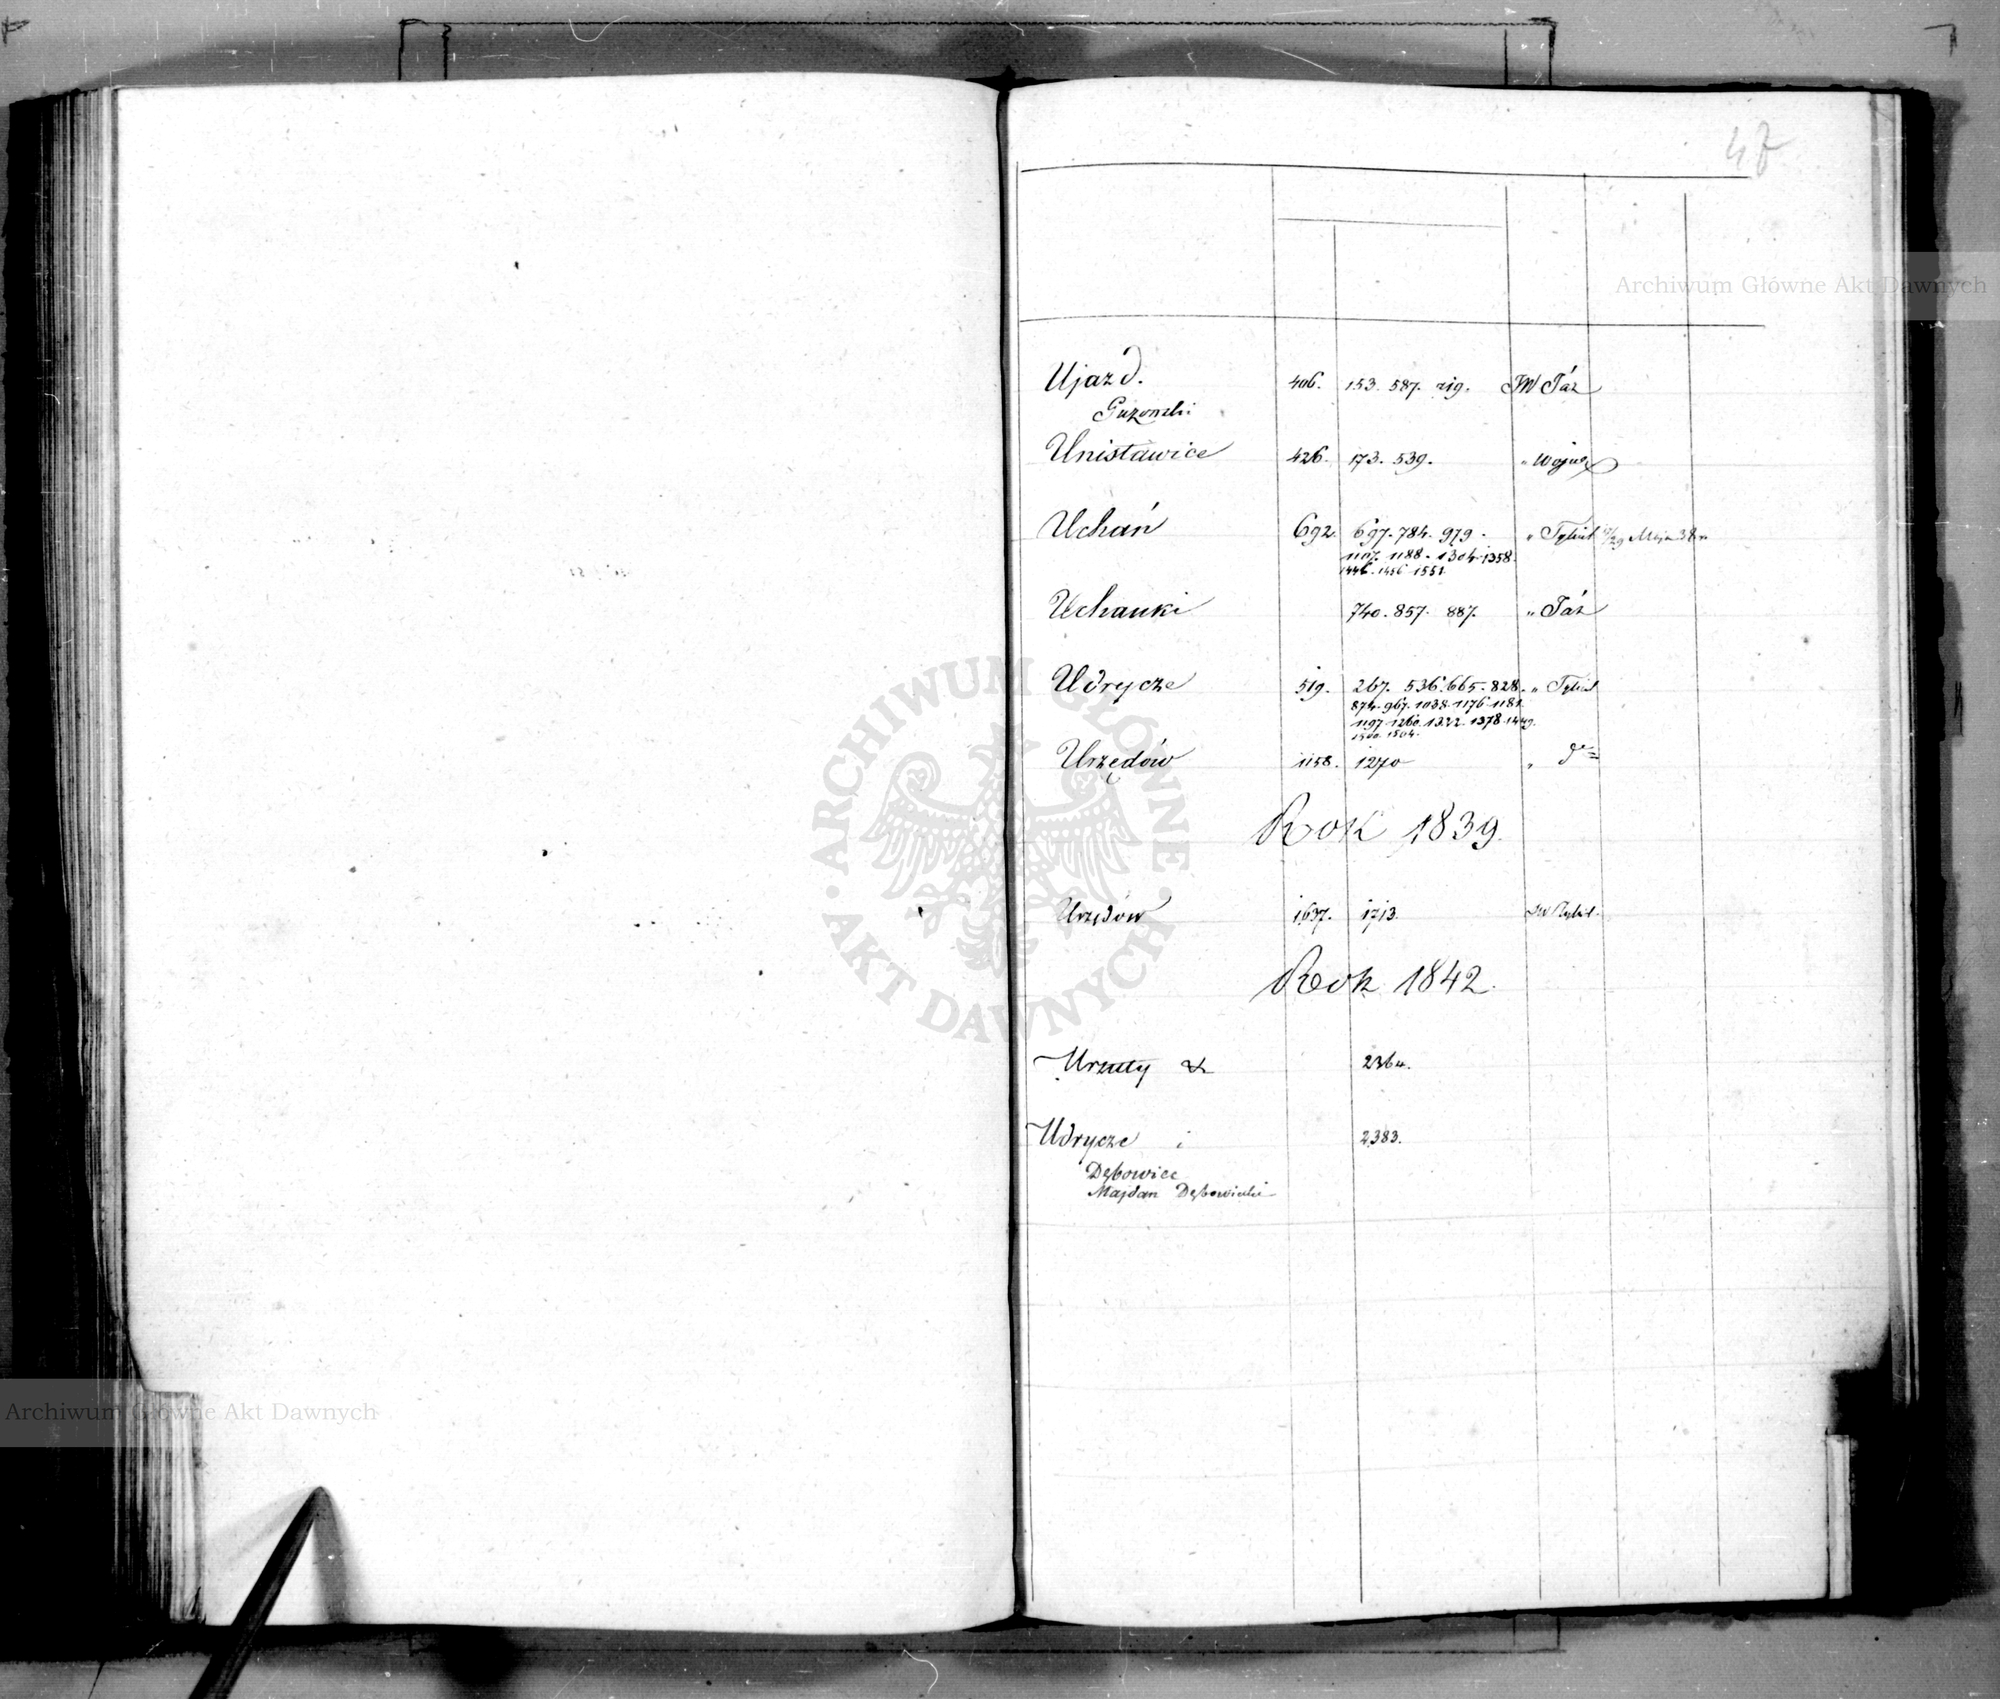 47
Archiwum Główne Akt Dawnych
Ujazd. 406. 153. 587. 719. JW Táż
Guzowski
Unisławice 426. 173. 539. "
Uchań 692. 697. 784. 979. " 17/29 Maja 38 r.
1107. 1188. 1304. 1358.
1446. 1456. 1551.
Uchanki 740. 857. 887. " Táż
Udrycze 519. 267. 536. 665. 828. "
874. 967. 1038. 1176. 1181.
1197. 1260. 1322. 1378. 1449.
1500. 1504.
Urzędów 1158. 1270 "
Rok 1839.
Urzędów 1637. 1713. JW
Rok 1842.
Urzuty & 2364.
Udrycze i 2383.
Dębowiec
Majdan Dębowiecki
ARCHIWUM GŁÓWNE
AKT DAWNYCH
Archiwum Główne Akt Dawnych